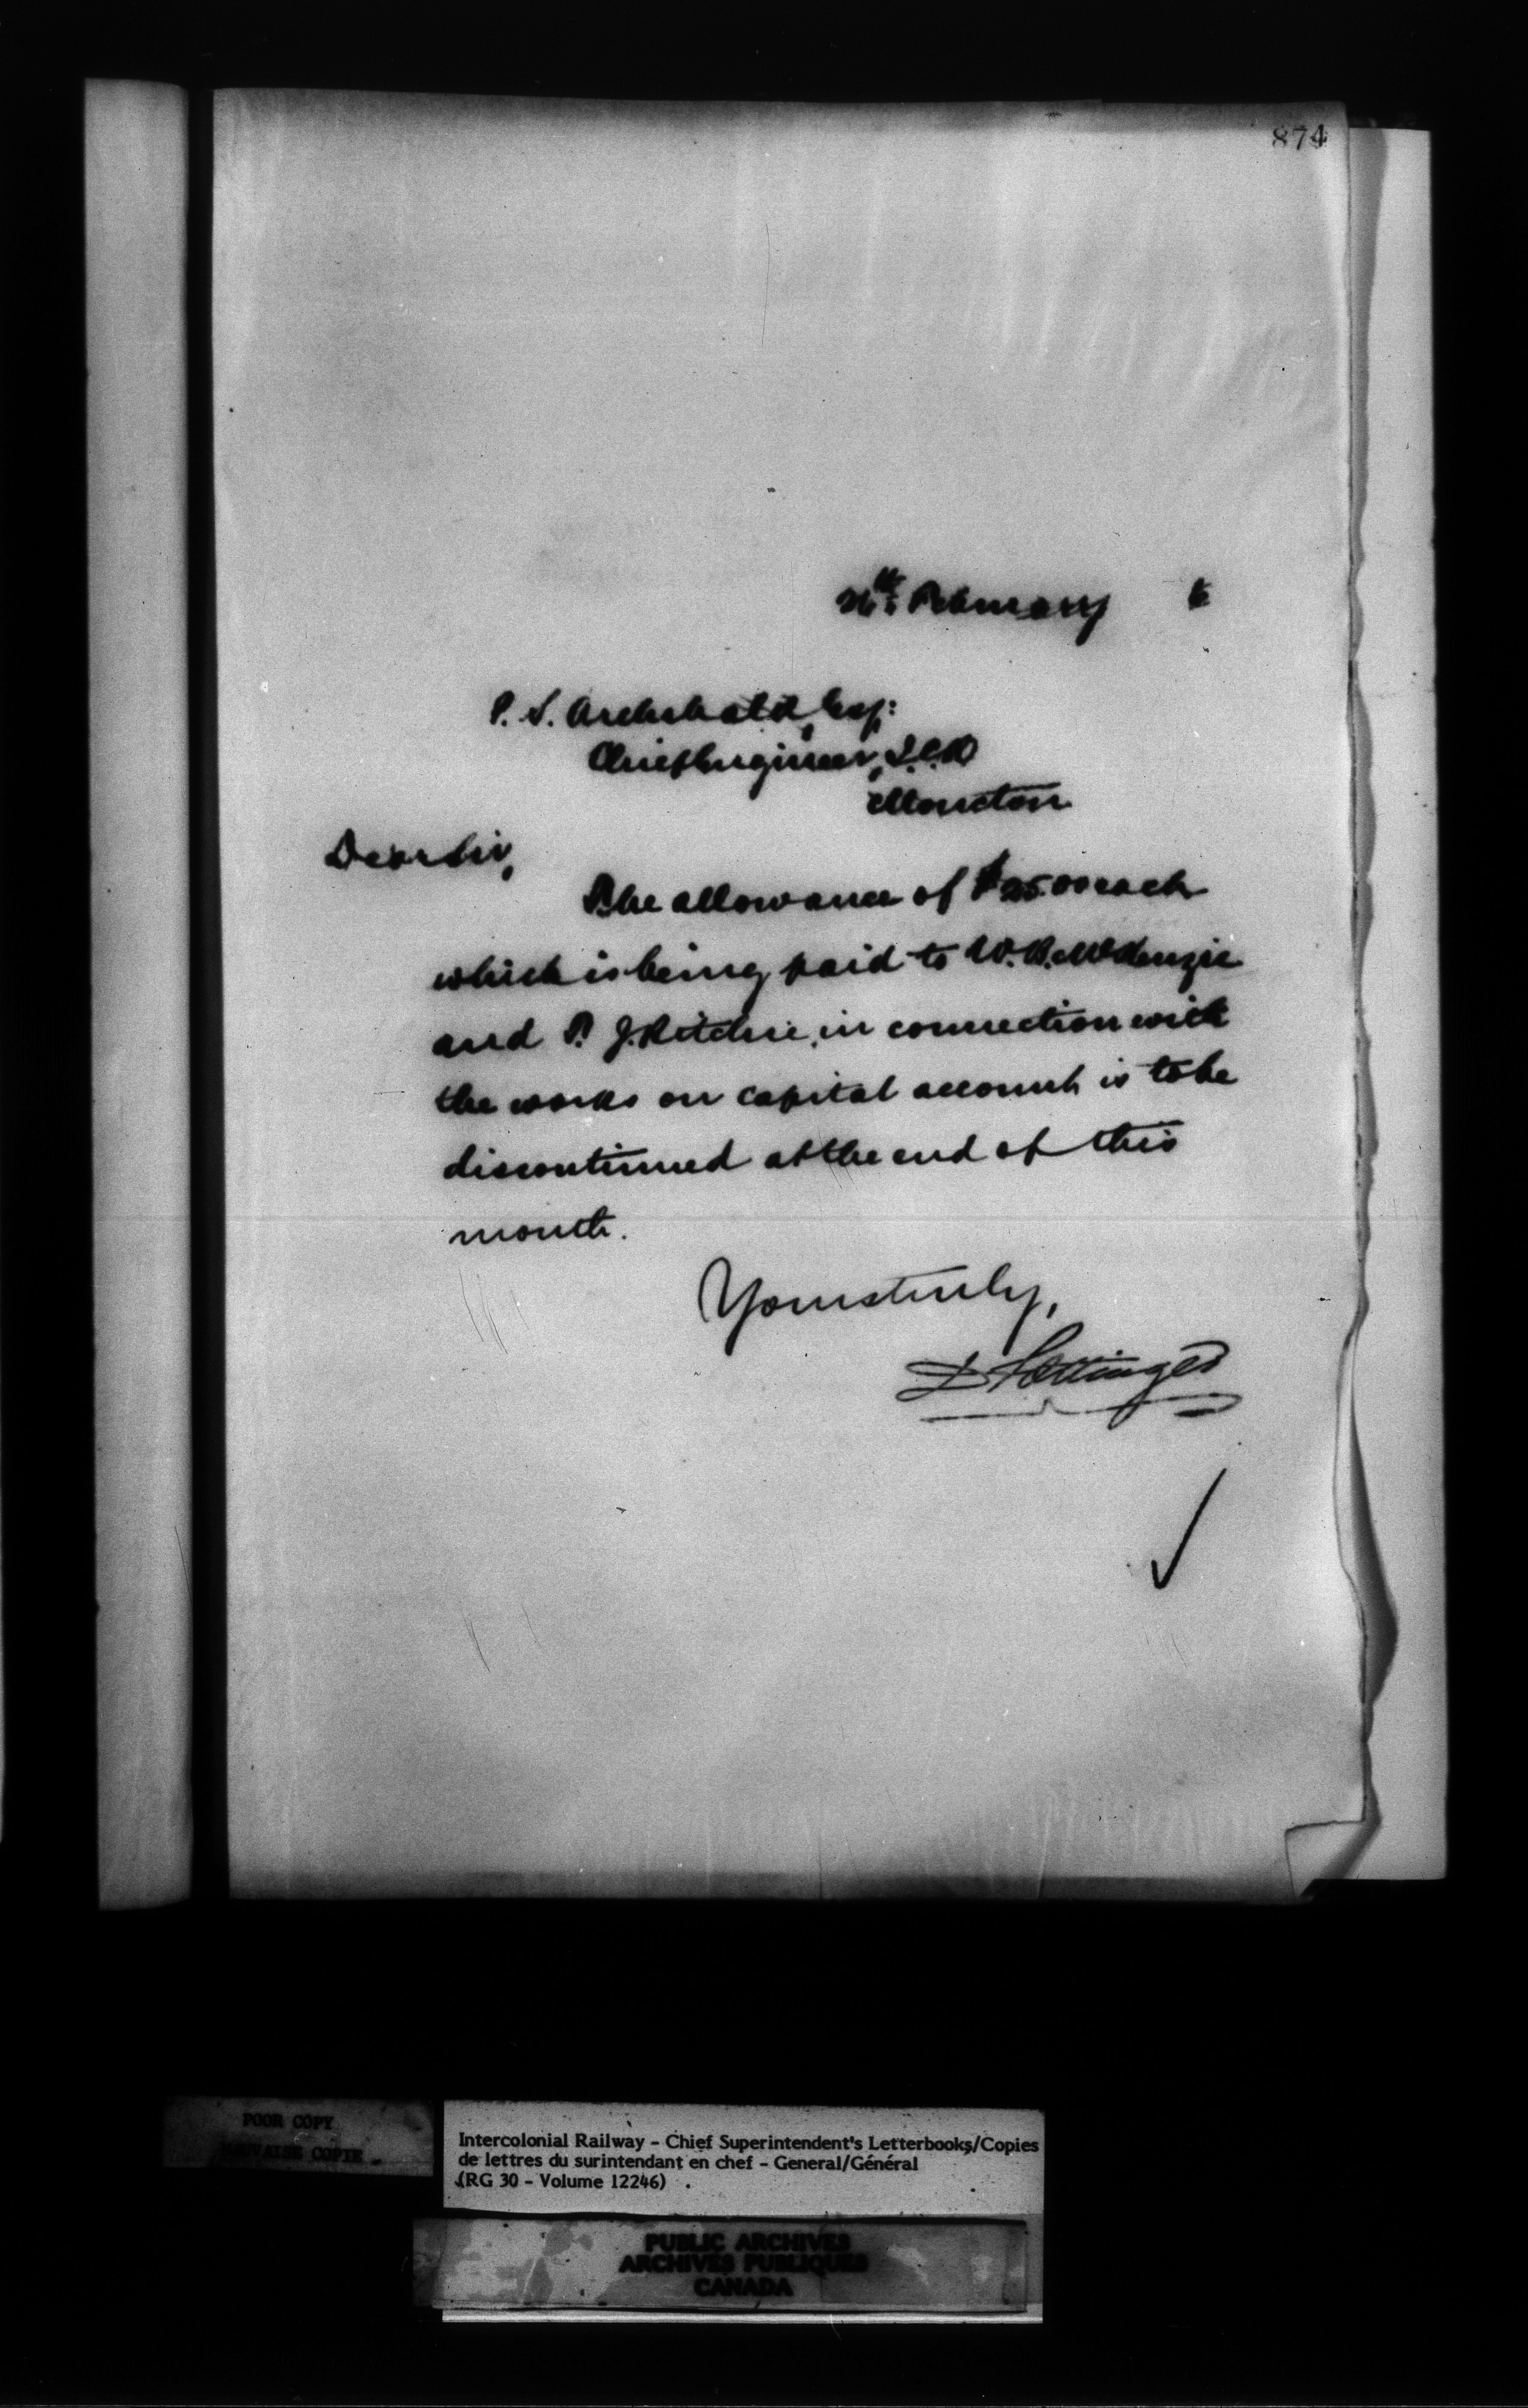 874
26th February 6
P. S. Archibald, Esq:
Chief Engineer, I.C.R
Moncton
Dear Sir,
The allowance of $25.00 each
which is being paid to W. B. McKenzie
and P. J. Ritchie, in connection with
the works on capital account is to be
discontinued at the end of this
month.
Yours truly,
D Pottinger
POOR COPY
MAUVAISE COPIE
Intercolonial Railway - Chief Superintendent's Letterbooks/Copies
de lettres du surintendant en chef - General/Général
(RG 30 - Volume 12246)
PUBLIC ARCHIVES
ARCHIVES PUBLIQUES
CANADA